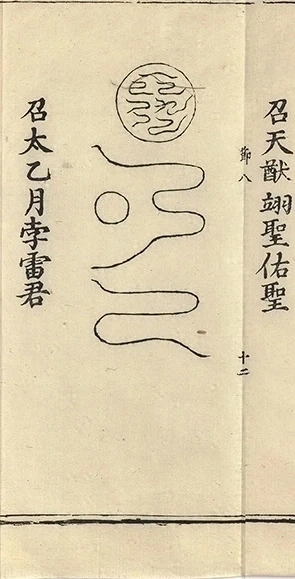 召天猷翊聖佑聖
節八
十二
召太乙月孛雷君